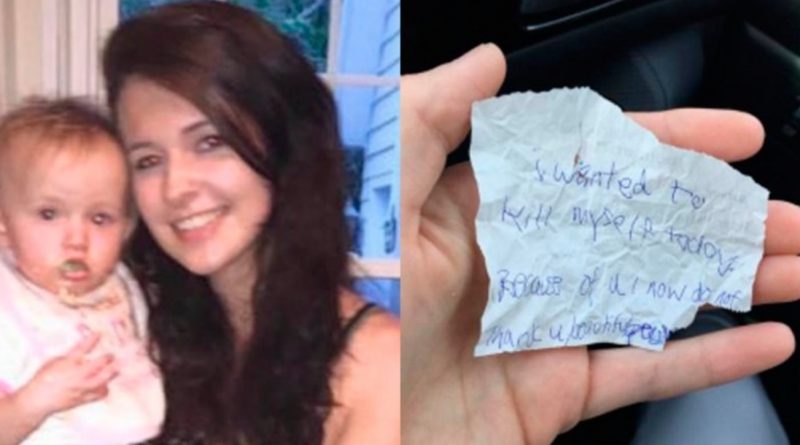 i wanted to
kill myself today.
Because of u i now do not
thank u beautiful person